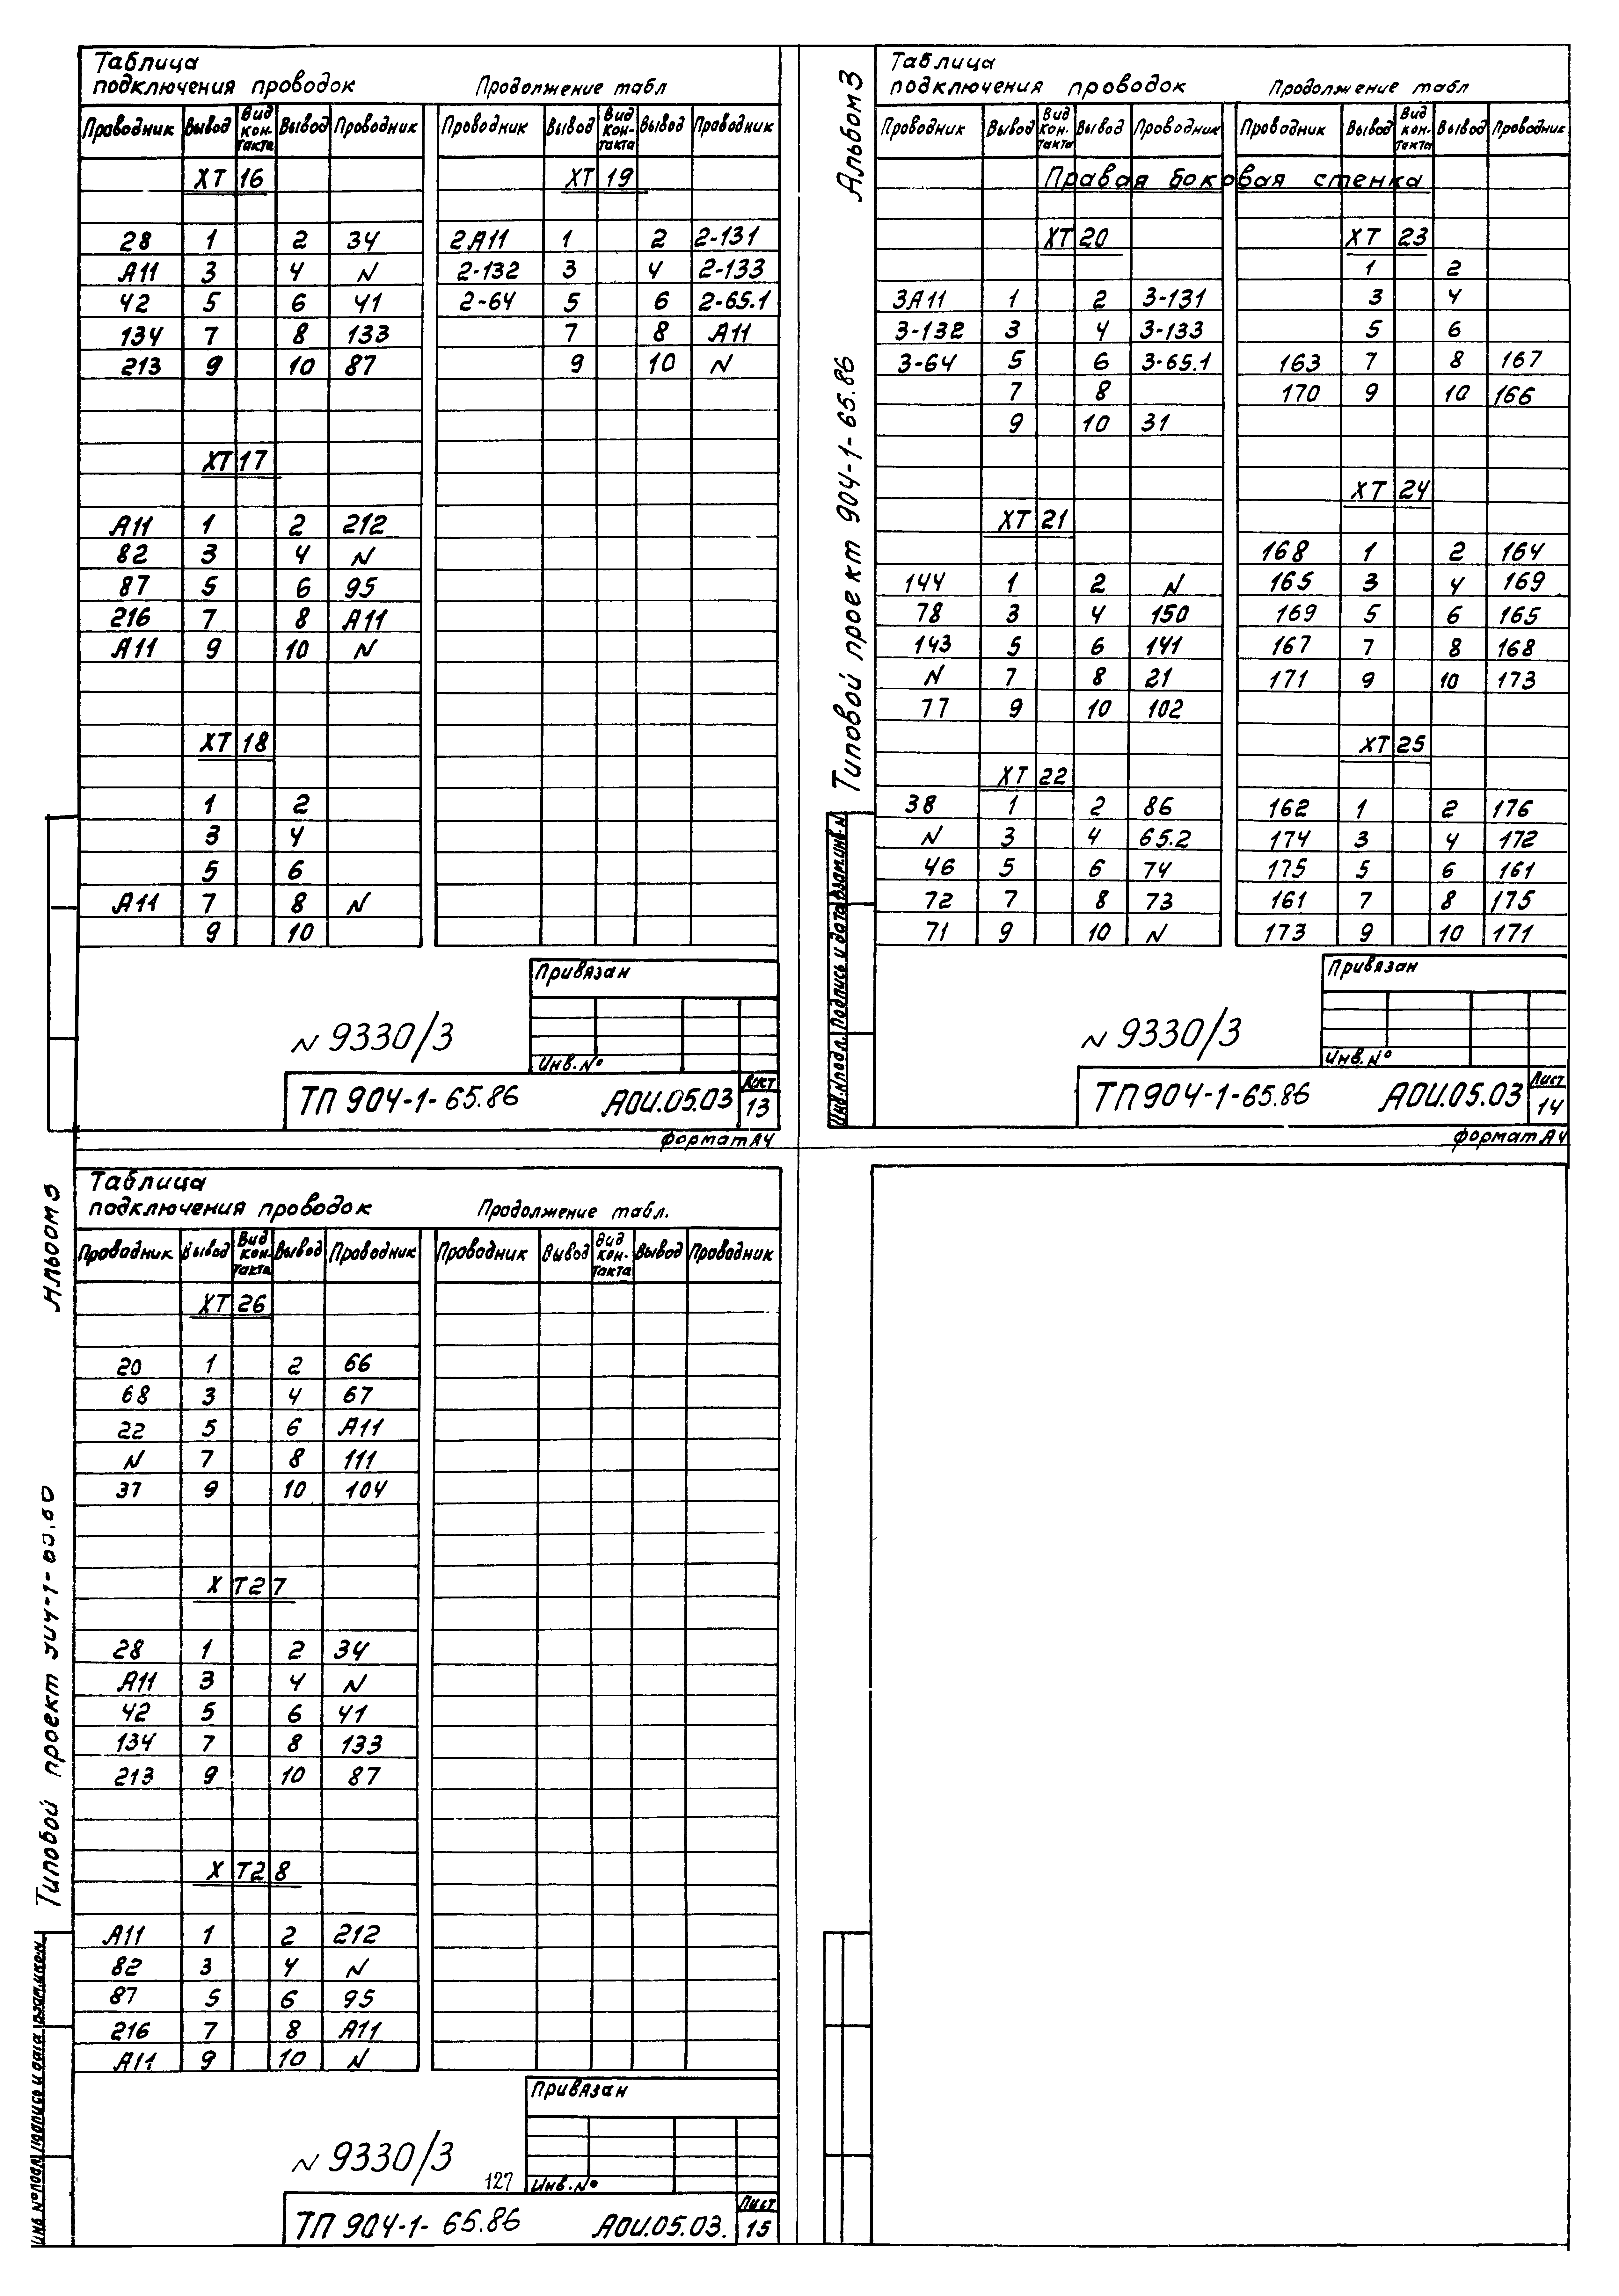 Таблица
подключения проводок Продолжение табл
Проводник Вывод Вид кон-такта Вывод Проводник Проводник Вывод Вид кон-такта Вывод Проводник
ХТ 16 ХТ 19
28 1 2 34 2А11 1 2 2-131
А11 3 4 N 2-132 3 4 2-133
42 5 6 41 2-64 5 6 2-65.1
134 7 8 133 7 8 А11
213 9 10 87 9 10 N
ХТ 17
А11 1 2 212
82 3 4 N
87 5 6 95
216 7 8 А11
А11 9 10 N
ХТ 18
1 2
3 4
5 6
А11 7 8 N
9 10
Привязан
N 9330/3
Инв.N°
ТП 904-1-65.86 АОИ.05.03 Лист 13
формат А4
Альбом 3
Типовой проект 904-1-65.86
Инв.N подл. Подпись и дата Взам.инв.N
Таблица
подключения проводок Продолжение табл
Проводник Вывод Вид кон-такта Вывод Проводник Проводник Вывод Вид кон-такта Вывод Проводник
Правая боковая стенка
ХТ 20 ХТ 23
1 2
3А11 1 2 3-131 3 4
3-132 3 4 3-133 5 6
3-64 5 6 3-65.1 163 7 8 167
7 8 170 9 10 166
9 10 31
ХТ 24
ХТ 21
168 1 2 164
144 1 2 N 165 3 4 169
78 3 4 150 169 5 6 165
143 5 6 141 167 7 8 168
N 7 8 21 171 9 10 173
77 9 10 102
ХТ 25
ХТ 22
38 1 2 86 162 1 2 176
N 3 4 65.2 174 3 4 172
46 5 6 74 175 5 6 161
72 7 8 73 161 7 8 175
71 9 10 N 173 9 10 171
Привязан
N 9330/3
Инв.N°
ТП 904-1-65.86 АОИ.05.03 Лист 14
формат А4
Альбом 3
Типовой проект 904-1-65.86
Таблица
подключения проводок Продолжение табл.
Проводник Вывод Вид кон-такта Вывод Проводник Проводник Вывод Вид кон-такта Вывод Проводник
ХТ 26
20 1 2 66
68 3 4 67
22 5 6 А11
N 7 8 111
37 9 10 104
ХТ27
28 1 2 34
А11 3 4 N
42 5 6 41
134 7 8 133
213 9 10 87
ХТ28
А11 1 2 212
82 3 4 N
87 5 6 95
216 7 8 А11
А11 9 10 N
Привязан
N 9330/3
127 Инв.N°
ТП 904-1-65.86 АОИ.05.03. Лист 15